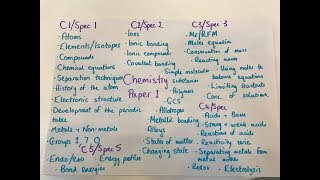 C1/Spec 1
- Atoms
- Elements/Isotopes
- Compounds
- Chemical equations
- Separation techniques
- History of the atom
- Electronic structure
- Development of the periodic table
- Metals + Non-metals
- Groups 1, 7, 0
C2/Spec 2
- Ions
- Ionic bonding
- Ionic compounds
- Covalent bonding
- Simple molecular substance
- Polymers
- GCS
- Allotropes
- Metallic bonding
- Alloys
- States of matter
- Changing state
C3/Spec 3
- Mr/RFM
- Moles equation
- Conservation of mass
- Reacting mass
- Using moles to balance equations
- Limiting reactants
- Conc. of solution
Chemistry
Paper 1
C4/Spec
- Acids + Base
- Strong + weak acids
- Reactions of acids
- Reactivity series
- Separating metals from metal oxides
- Redox
- Electrolysis
C5/Spec 5
- Endo/exo
- Energy profile
- Bond Energies